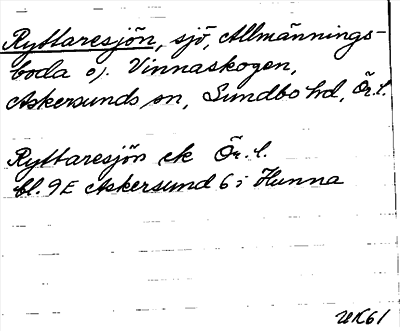 Ryttaresjön, sjö, Allmännings-
boda o. Vinnaskogen,
Askersunds sn, Sundbo hd, Ör. l.
Ryttaresjön ek Ör. l.
bl. 9E Askersund 6 i Hunna
UK61